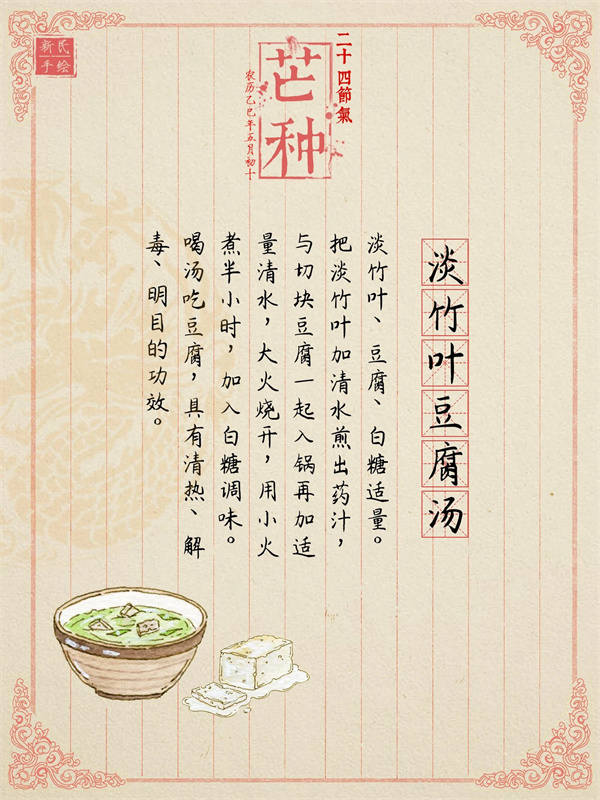 新民
手绘
二十四節氣
芒种
农历乙巳年五月初十
淡竹叶豆腐汤
淡竹叶、豆腐、白糖适量。
把淡竹叶加清水煎出药汁，
与切块豆腐一起入锅再加适
量清水，大火烧开，用小火
煮半小时，加入白糖调味。
喝汤吃豆腐，具有清热、解
毒、明目的功效。